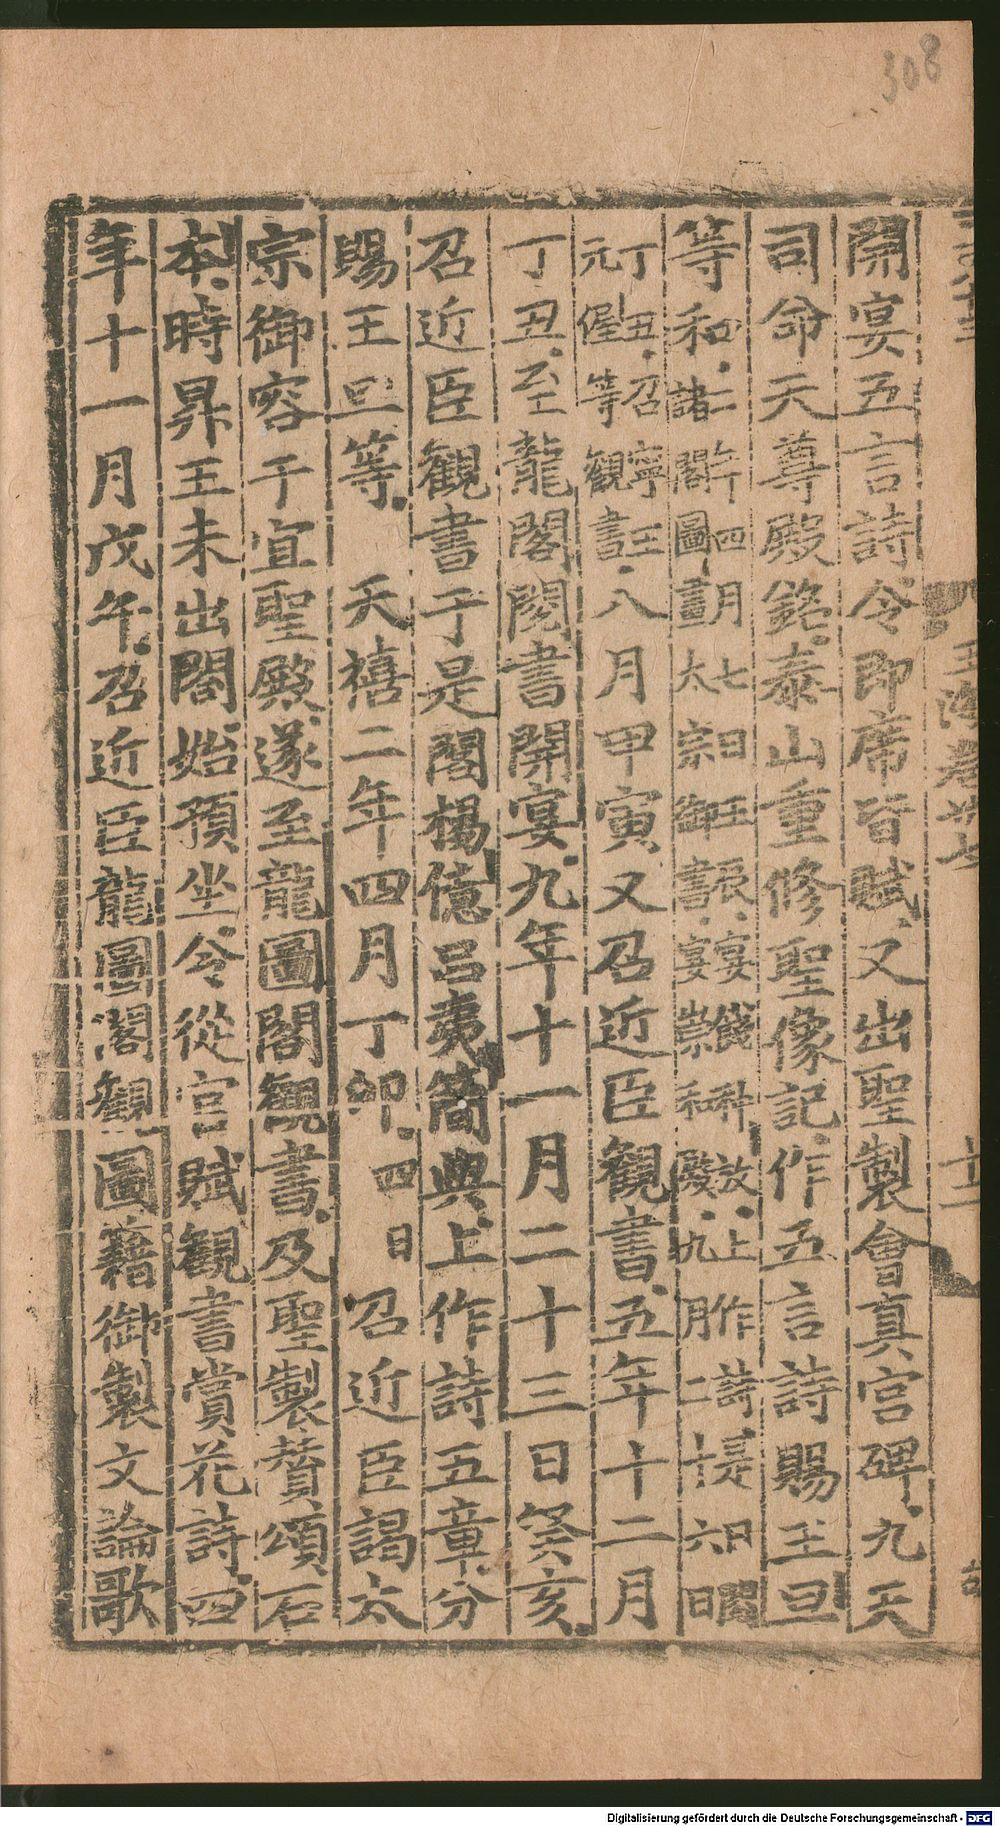 308
開宴五言詩令即席皆賦又出聖製會真宮碑九天
司命天尊殿銘泰山重修聖像記作五言詩賜王旦
等和四二年四月七日壬辰宴餞种放上作詩是日閣
諸閣圖畫太宗御書宴崇和殿九月二十六日
丁丑召寧王
元偓等觀書八月甲寅又召近臣觀書五年十二月
丁丑至龍閣閱書開宴九年十一月二十三日癸亥
召近臣觀書于是閣楊億呂夷簡與上作詩五章分
賜王旦等 天禧二年四月丁卯四日召近臣謁太
宗御容于宜聖殿遂至龍圖閣觀書及聖製贊頌石
本時昇王未出閤始預坐令從官賦觀書賞花詩四
年十一月戊午召近臣龍圖閣觀圖籍御製文論歌
玉海卷廿七
十二
Digitalisierung gefördert durch die Deutsche Forschungsgemeinschaft - DFG